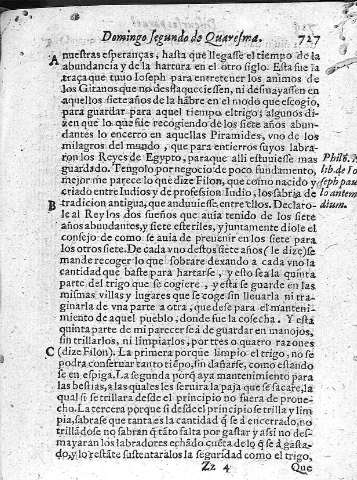 Domingo segundo de Quaresma. 727
A nuestras esperanças, hasta que llegasse el tiempo de la
abundancia y de la hartura en el otro siglo. Esta fue la
traça que tuuo Ioseph para entretener los animos de
los Gitanos que no desflaqueciessen, ni desmayassen en
aquellos siete años de la hãbre en el modo que escogio,
para guardar para aquel tiempo el trigo; algunos di
zen que lo que fue recogiendo de los siete años abun
dantes lo encerro en aquellas Piramides, vno de los
milagros del mundo, que para entierros suyos labra-
ron los Reyes de Egypto, para que alli estuuiesse mas
guardado. Tengolo por negocio de poco fundamento,
mejor me parece lo que dize Filon, que como nacido y
criado entre Iudios y de profession Iudio, los sabria de
B tradicion antigua, que anduuiesse entre ellos. Declaro-
le al Rey los dos sueños que auia tenido de los siete
años abundantes, y siete esteriles, y juntamente diole el
consejo de como se auia de preuenir en los siete para
los otros siete. De cada vno destos siete años (le dize) se
mande recoger lo que sobrare dexando a cada vno la
cantidad que baste para hartarse, y esto sea la quinta
parte del trigo que se cogiere, y esta se guarde en las
mismas villas y lugares que se coge sin lleuarla ni tra-
ginarla de vna parte a otra, quedese para el manteni-
miento de aquel pueblo, donde fue la cosecha. Y esta
quinta parte de mi parecer sea de guardar en manojos,
sin trillarlos, ni limpiarlos, por tres o quatro razones
C (dize Filon). La primera porque limpio el trigo, no se
podra conseruar tanto tiẽpo, sin dañarse, como estando
se en espiga. La segunda porq̃ aya mantenimiento para
las bestias, a las quales les seruira la paja que se sacare, la
qual si se trillara desde el principio no fuera de proue-
cho. La tercera porque si desde el principio se trilla y lim
pia, sabrase que tanta es la cantidad q̃ se à encerrado, no
trillãdo los no sabran q̃ tãto falta por gastar y assi no des-
mayaran los labradores echãdo cuẽta de lo q̃ se à gasta-
do, y lo restãte sustentaralos la seguridad como el trigo,
Zz 4 Que
Philõ.
lib. de Io
seph pau
lo antem
dium.